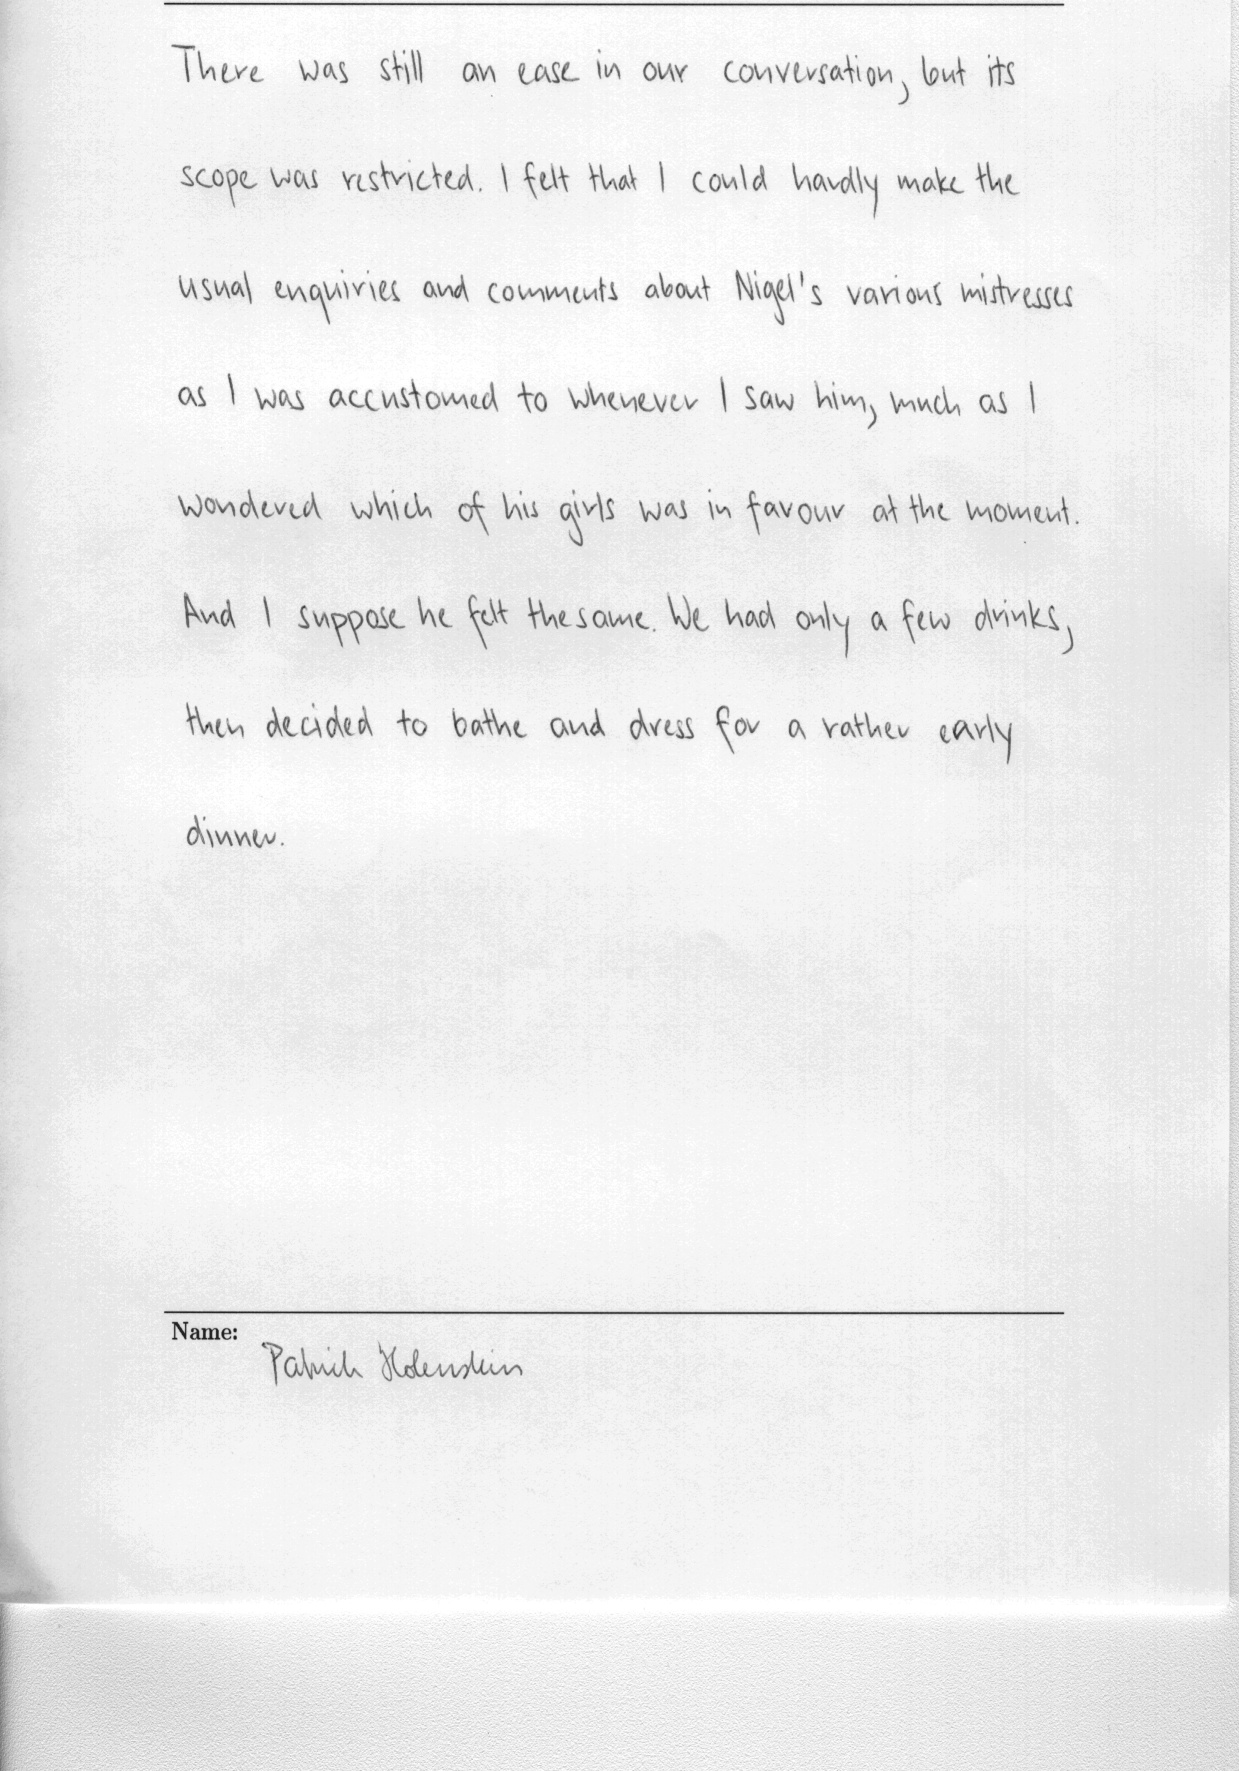 There was still an ease in our conversation, but its
scope was restricted. I felt that I could hardly make the
usual enquiries and comments about Nigel's various mistresses
as I was accustomed to whenever I saw him, much as I
wondered which of his girls was in favour at the moment.
And I suppose he felt the same. We had only a few drinks,
then decided to bathe and dress for a rather early
dinner.
Name:
Patrick Holenstein